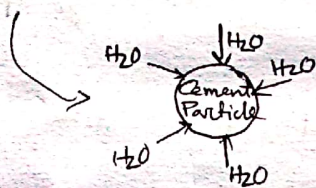 H2O
H2O
H2O
Cement
Particle
H2O
H2O